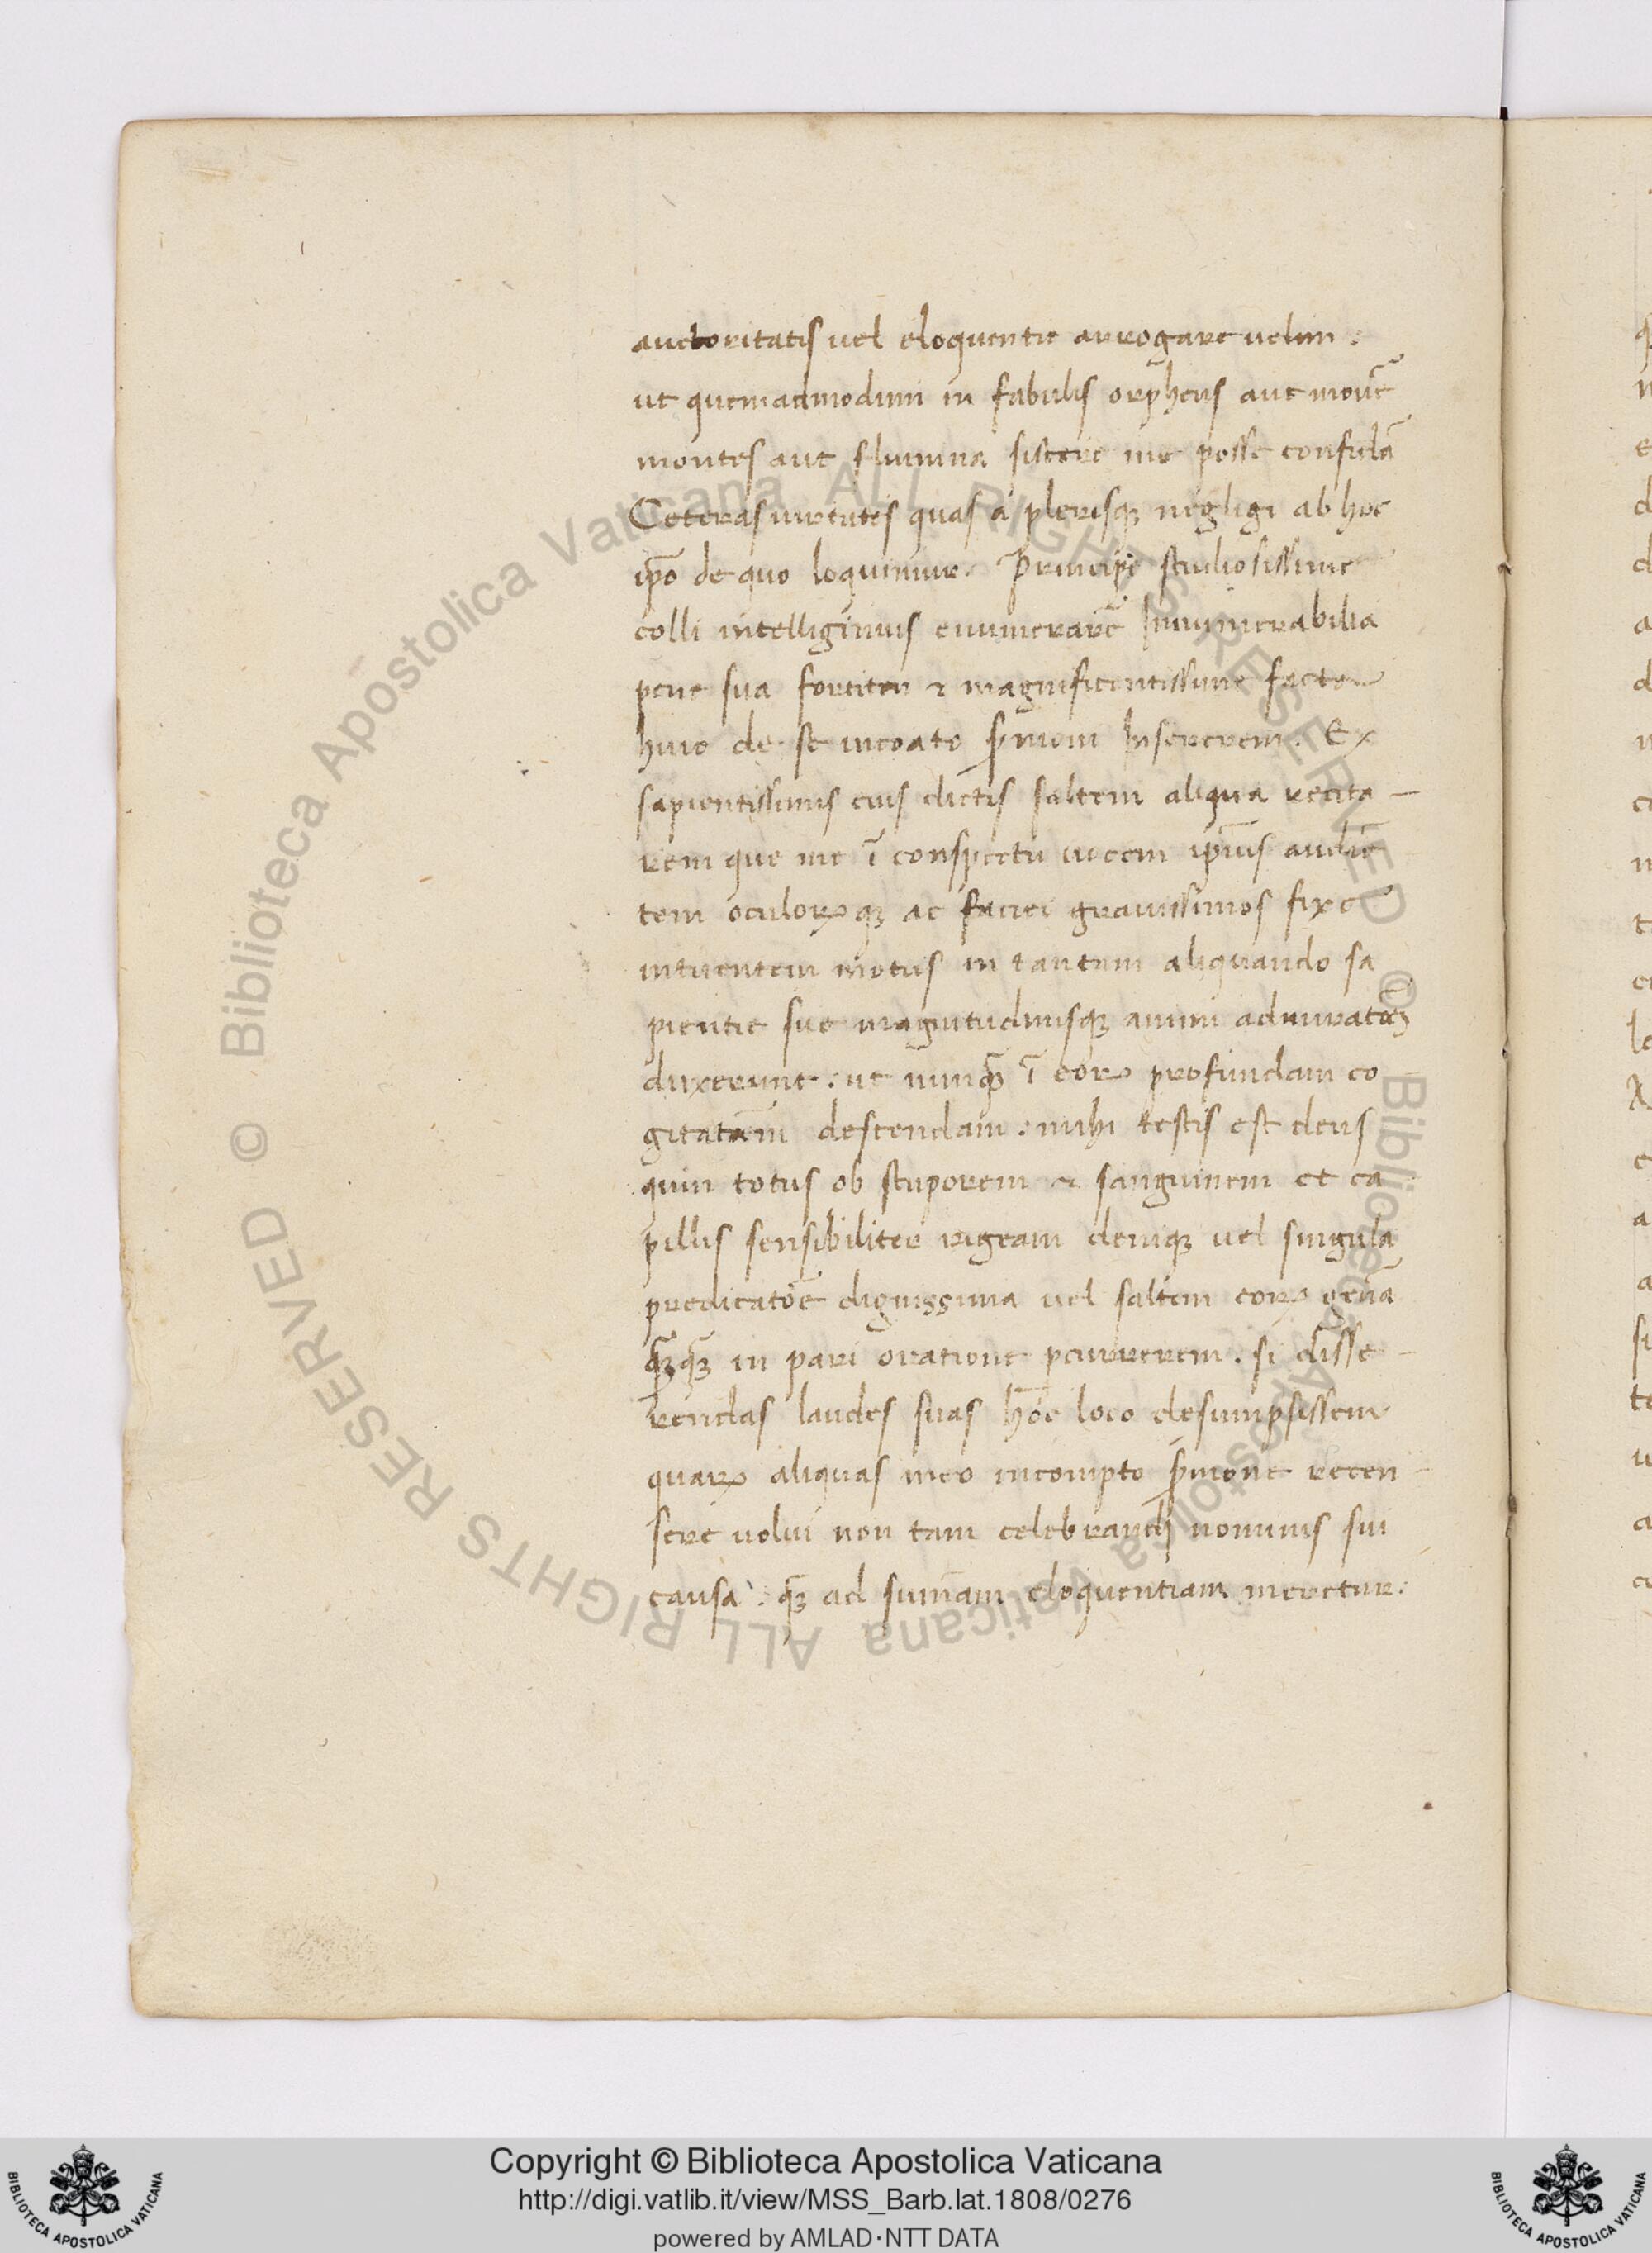 auctoritatis uel eloquentie arrogare uelim :
ut quemadmodum in fabulis orpheus aut mouē
montes aut flumina sistere me posse confidā
Ceteras uirtutes quas a plerisqꝫ negligi ab hoc
ip̄o de quo loquimur. Principe studiosissime
colli intelligimus enumerarē Innumerabilia
pene sua fortiter & magnificentissime facta
huic de se incoato s̄moni Insererem. Ex
sapientissimis eius dictis saltem aliqua recita-
rem que me ī conspectu uocem ip̄ius audiē
tem oculoꝝqꝫ ac faciei grauissimos fixe
intuentem motus in tantam aliquando sa
pientie sue magnitudinisqꝫ animi admiratōꝫ
duxerunt : ut nunqȝ̄ ī eoꝝ profundam co
gitatōm descendam : mihi testis est deus
quin totus ob stuporem & sanguinem et ca
pillis sensibiliter rigeam deniqꝫ uel singula
predicatōē dignissima uel saltem eoꝝ gn̄a
qȝ̄qȝ̄ in pari oratione ꝑcurrerem. si disse-
rendas laudes suas hoc loco desumpsissem
quaꝝ aliquas meo incompto s̄mone recen-
sere uolui non tam celebrandi nominis sui
causa : qȝ̄ ad sum̄am eloquentiam meretur.
Copyright © Biblioteca Apostolica Vaticana
http://digi.vatlib.it/view/MSS_Barb.lat.1808/0276
powered by AMLAD·NTT DATA